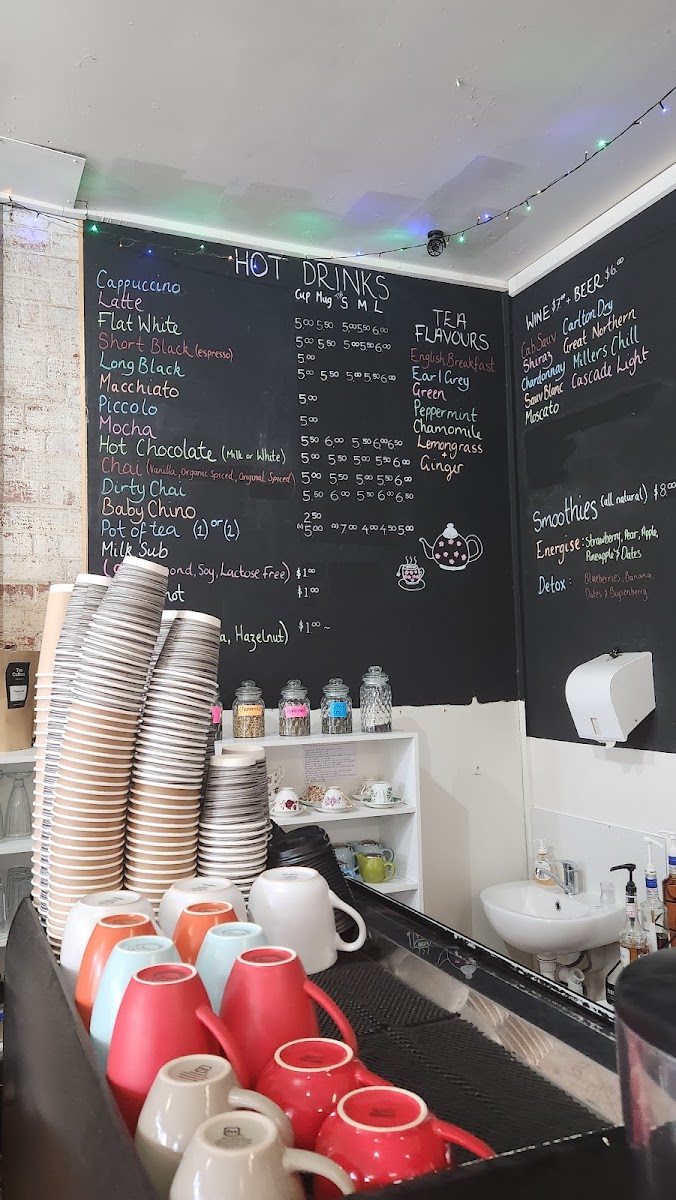 HOT DRINKS
Cup Mug S M L
Cappuccino 5⁰⁰ 5⁵⁰ 5⁰⁰ 5⁵⁰ 6⁰⁰
Latte 5⁰⁰ 5⁵⁰ 5⁰⁰ 5⁵⁰ 6⁰⁰
Flat White 5⁰⁰
Short Black (espresso)
Long Black 5⁰⁰ 5⁵⁰ 5⁰⁰ 5⁵⁰ 6⁰⁰
Macchiato 5⁰⁰
Piccolo 5⁰⁰
Mocha 5⁵⁰ 6⁰⁰ 5⁵⁰ 6⁰⁰ 6⁵⁰
Hot Chocolate (Milk or White)
Chai (Vanilla, Organic Spiced, Original Spiced)
Dirty Chai 5⁵⁰ 6⁰⁰ 5⁵⁰ 6⁰⁰ 6⁵⁰
Baby Chino 2⁵⁰
Pot of tea (1) or (2) (1) 5⁰⁰ (2) 7⁰⁰ 4⁰⁰ 4⁵⁰ 5⁰⁰
Milk Sub
ond, Soy, Lactose Free) $1⁰⁰
ot $1⁰⁰
a, Hazelnut) $1⁰⁰ ~
TEA
FLAVOURS
English Breakfast
Earl Grey
Green
Peppermint
Chamomile
Lemongrass
+
Ginger
WINE $7⁰⁰ + BEER $6⁰⁰
Cab Sauv
Shiraz
Chardonnay
Sauv Blanc
Moscato
Carlton Dry
Great Northern
Millers Chill
Cascade Light
Smoothies (all natural) $8⁰⁰
Energise: Strawberry, Pear, Apple,
Pineapple & Dates
Detox: Blueberries, Banana,
Dates & Boysenberry